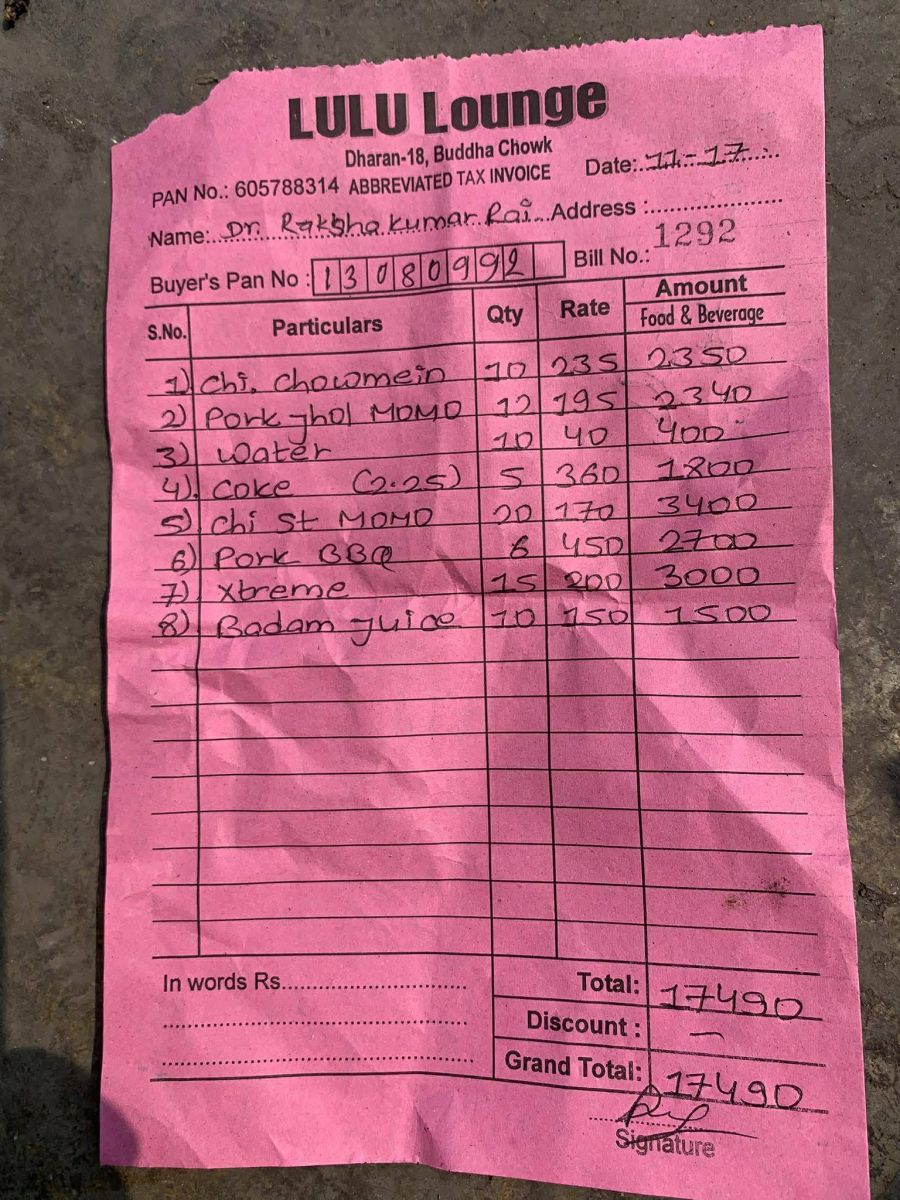 LULU Lounge
Dharan-18, Buddha Chowk
PAN No.: 605788314 ABBREVIATED TAX INVOICE Date: 11-17
Name: Dr. Raksha kumar Rai Address :
Buyer's Pan No : 13080992 Bill No.: 1292
S.No. Particulars Qty Rate Amount
Food & Beverage
1) Chi. Chowmein 10 235 2350
2) Pork jhol MOMO 12 195 2340
3) Water 10 40 400
4). Coke (2.25) 5 360 1800
5) Chi St MOMO 20 170 3400
6) Pork BBQ 6 450 2700
7) Xtreme 15 200 3000
8) Badam juice 10 150 1500
In words Rs. Total: 17490
Discount : –
Grand Total: 17490
Signature